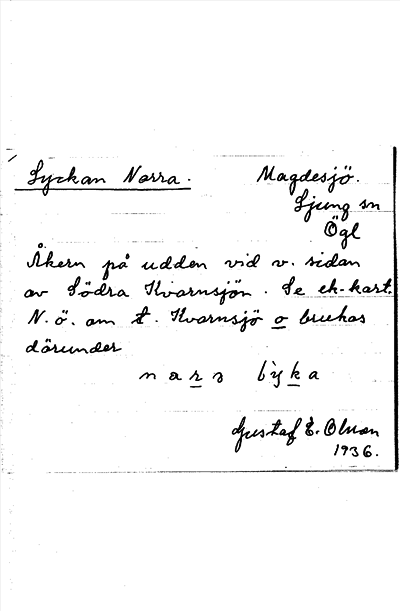 Lyckan Norra. Magdesjö.
Ljung sn
Ögl
Åkern på udden vid v. sidan
av Södra Kvarnsjön. Se ek-kart.
N. ö. om t. Kvarnsjö o brukas
därunder
Gustaf E. Olson
1936.